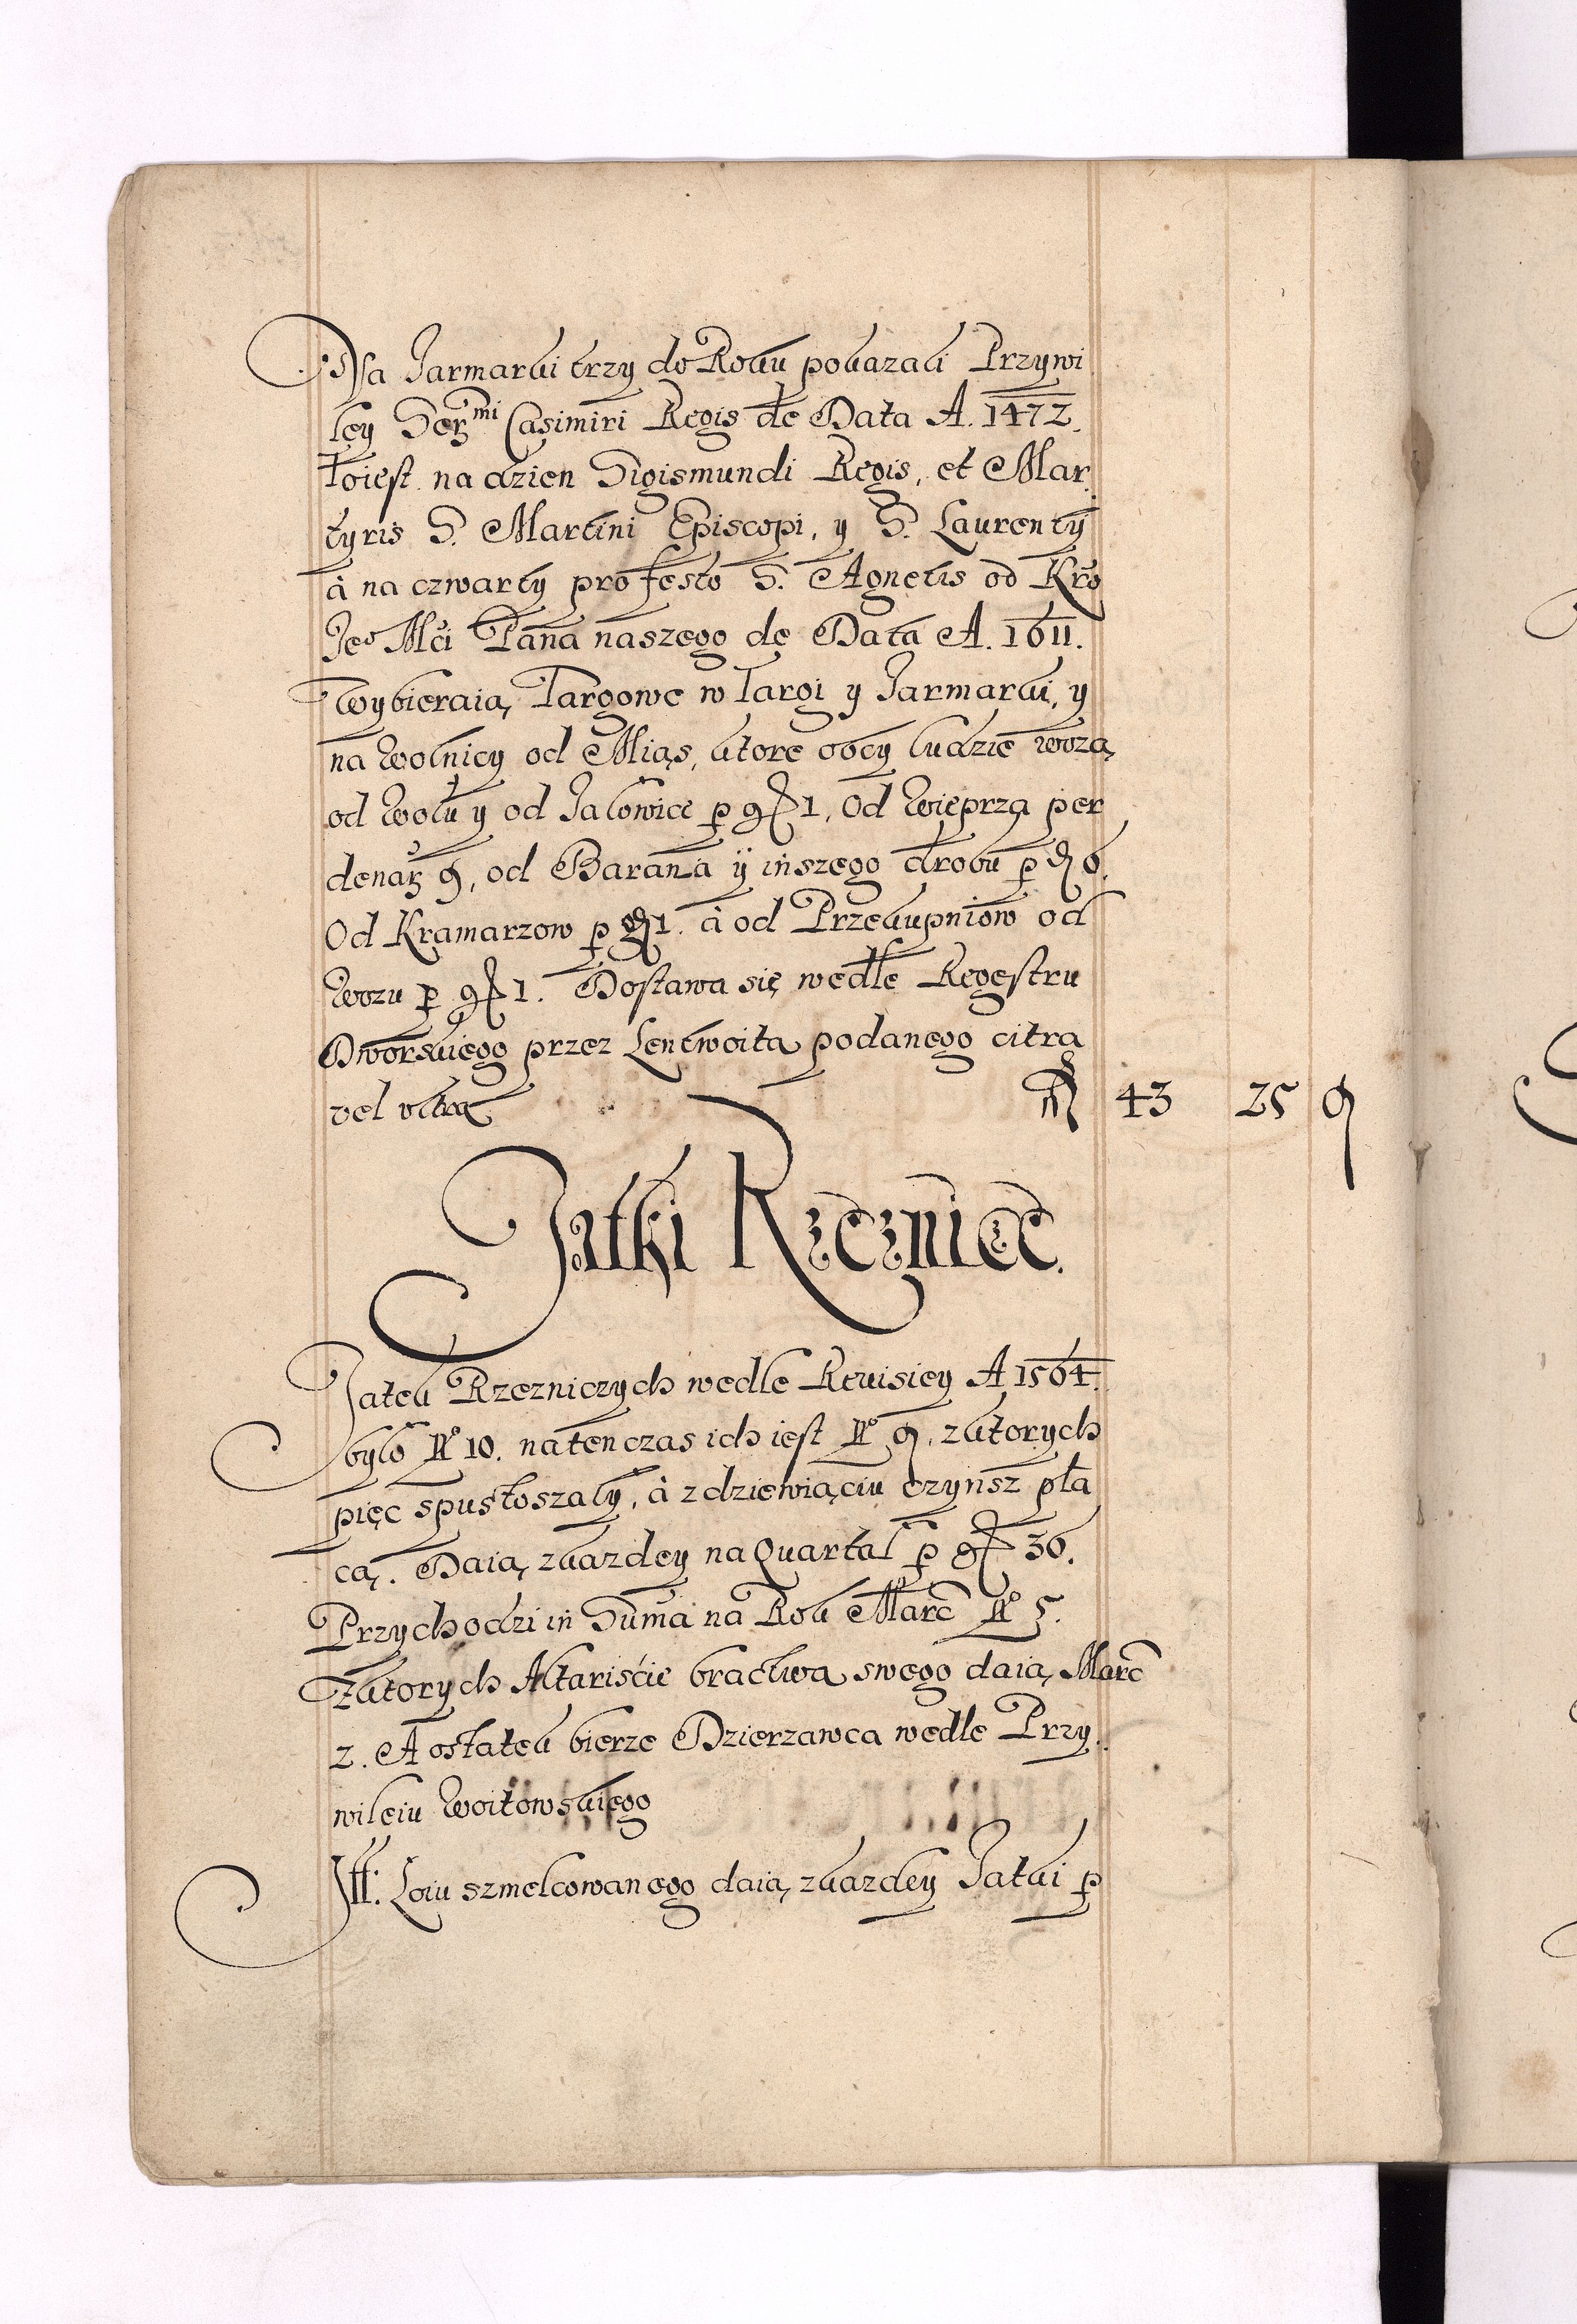 Na Jarmarki trzy do Roku pokazali Przywi
ley Ser<sup>mi</sup> Casimiri Regis de Data A. 1472.
toiest na dzien Sigismundi Regis, et Mar
tyris S. Martini Episcopi, y S. Laurentÿ
à na czwarty profesto S. Agnetis od Kro
Je<sup>o</sup> Mci Pana naszego de Data A. 1611.
Wybieraią Targowe w Targi y Jarmarki, y
na Wolnicy od Mias, ktore obcy ludzie wożą
od Wołu y od Jalowice p gr 1, Od Wieprza per
denar 9, od Barana ÿ inszego drobu p d 6.
Od Kramarzow p d 1. à od Przekupniow od
Wozu p gr 1. Dostawa się wedle Regestru
Dworskiego przez Lentwoita podanego citra
vel vltra fl 43 25 9
Jatki Rzeznicze.
Jatek Rzezniczych wedle Reuisiey A 1564.
bylo N<sup>o</sup> 10. natenczas ich iest N<sup>o</sup> 9. z ktorych
pięc spustoszały, à z dziewiąciu czynsz pła
cą. Daią z kazdey na Quartal p gr 36.
Przychodzi in Suma na Rok Marc N<sup>o</sup> 5.
Z ktorych Altariscie bractwa swego daią Marc
2. A ostatek bierze Dzierzawca wedle Przy
wileiu Woitowskiego
It: Loiu szmelcowanego daią z kazdey Jatki p